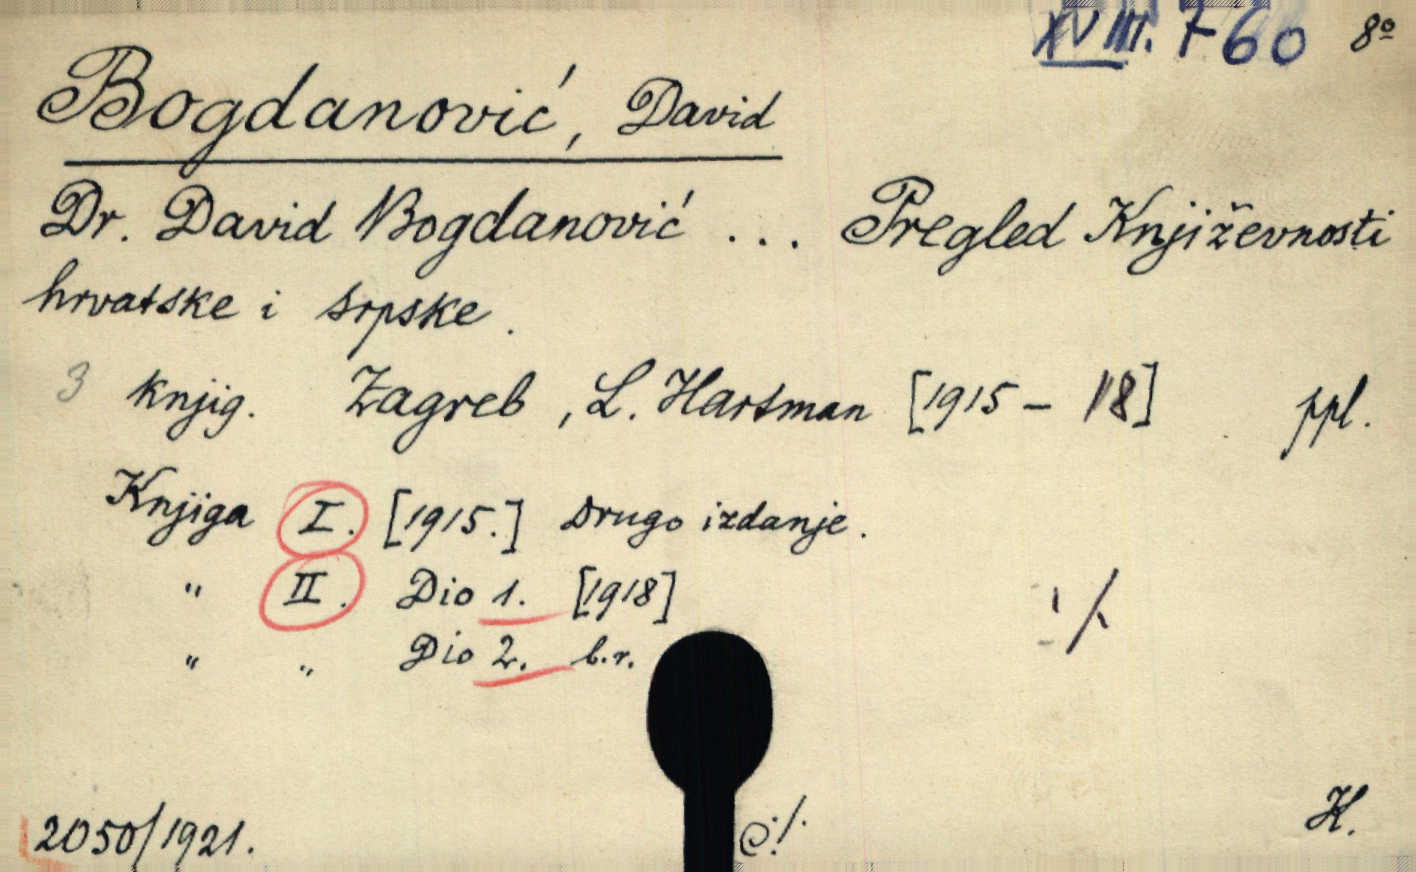 XVIII. 760 8º
Bogdanović, David
Dr. David Bogdanović ... Pregled Književnosti
hrvatske i srpske.
3 knjig. Zagreb, L. Hartman [1915 - 18] ppl.
Knjiga I. [1915.] Drugo izdanje.
" II. Dio 1. [1918]
" " Dio 2. b.r.
2050/1921. K.